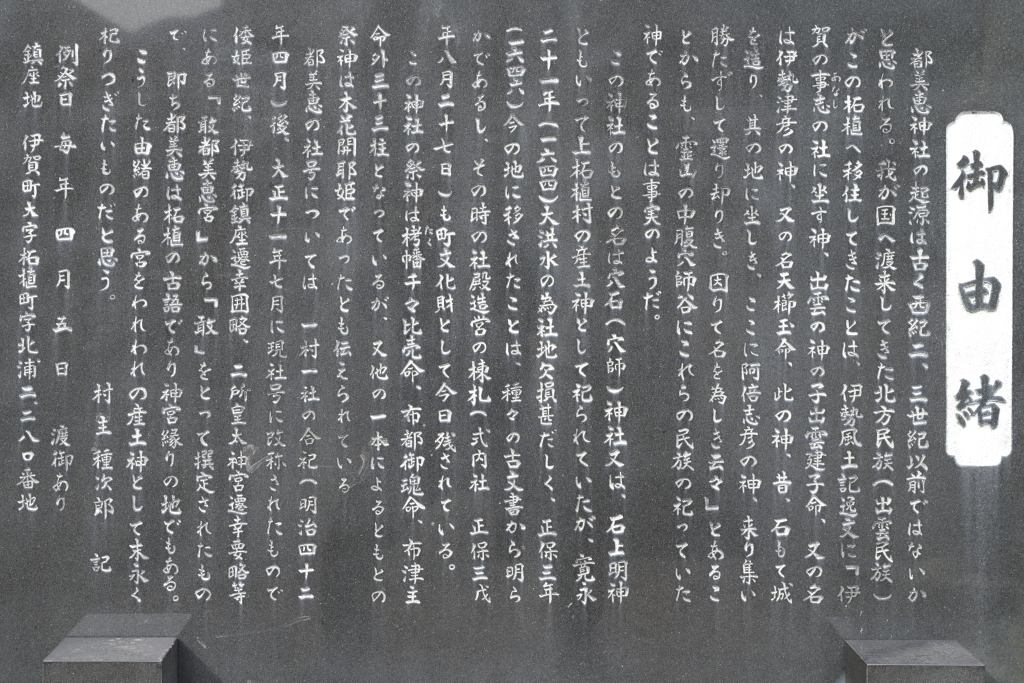 御由緒
都美恵神社の起源は古く西紀二、三世紀以前ではないか
と思われる。我が国へ渡来してきた北方民族(出雲民族)
がこの柘植へ移住してきたことは、伊勢風土記逸文に『伊
賀の事志の社に坐す神、出雲の神の子出雲建子命、又の名
あなし
は伊勢津彦の神、又の名天櫛玉命、此の神、昔、石もて城
を造り、其の地に坐しき、ここに阿倍志彦の神、来り集い
勝たずして還り却りき。因りて名を為しき云々』とあるこ
とからも、霊山の中腹穴師谷にこれらの民族の祀っていた
神であることは事実のようだ。
この神社のもとの名は穴石(穴師)神社又は、石上明神
ともいって上柘植村の産土神として祀られていたが、寛永
二十一年(一六四四)大洪水の為社地欠損甚だしく、正保三年
(一六四六)今の地に移されたことは、種々の古文書から明ら
かであるし、その時の社殿造営の棟札(式内社 正保三戌
年八月二十七日)も町文化財として今日残されている。
この神社の祭神は栲幡千々比売命、布都御魂命、布津主
たく
命外三十三柱となっているが、又他の一本によるともとの
祭神は木花開耶姫であったとも伝えられている
都美恵の社号については 一村一社の合祀(明治四十二
年四月)後、大正十一年七月に現社号に改称されたもので
倭姫世紀、伊勢御鎮座遷幸囲略、二所皇太神宮遷幸要略等
にある『敢都美恵宮』から『敢』をとって撰定されたもの
で、即ち都美恵は柘植の古語であり神宮縁りの地でもある。
こうした由緒のある宮をわれわれの産土神として末永く
祀りつぎたいものだと思う。
村主種次郎 記
例祭日 毎年四月五日 渡御あり
鎮座地 伊賀町大字柘植町字北浦二、二八〇番地